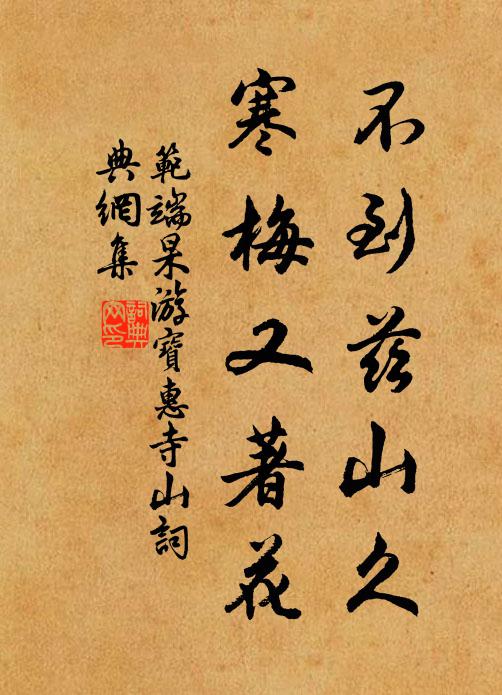 不到茲山久
寒梅又著花
範端杲游寶惠寺山詞
典網集
詞典网印